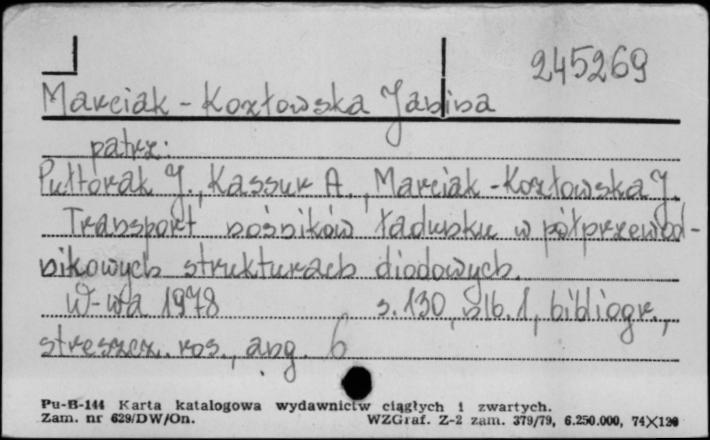 245269
Marciak-Kozłowska Janina
patrz:
Pułtorak J., Kassur A., Marciak-Kozłowska J.
Transport nośników ładunku w półprzewod-
nikowych strukturach diodowych.
W-wa 1978 s. 130, nlb. 1, bibliogr.,
streszcz. ros., ang. 6
Pu-B-144 Karta katalogowa wydawnictw ciągłych i zwartych.
Zam. nr 629/DW/On. WZGraf. Z-2 zam. 379/79, 6.250.000, 74X120